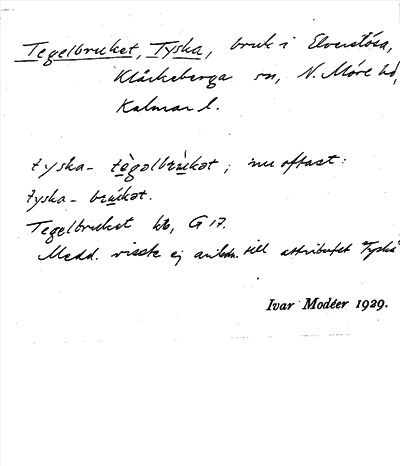 Tegelbruket, Tyska, bruk i Elverslösa,
Kläckeberga sn, N. Möre hd,
Kalmar l.
tyska- tègəlbrùkət; nu oftast:
tyska- brúkət.
Tegelbruket kb, G 17.
Medd. visste ej anledn. till attributet Tyska
Ivar Modéer 1929.